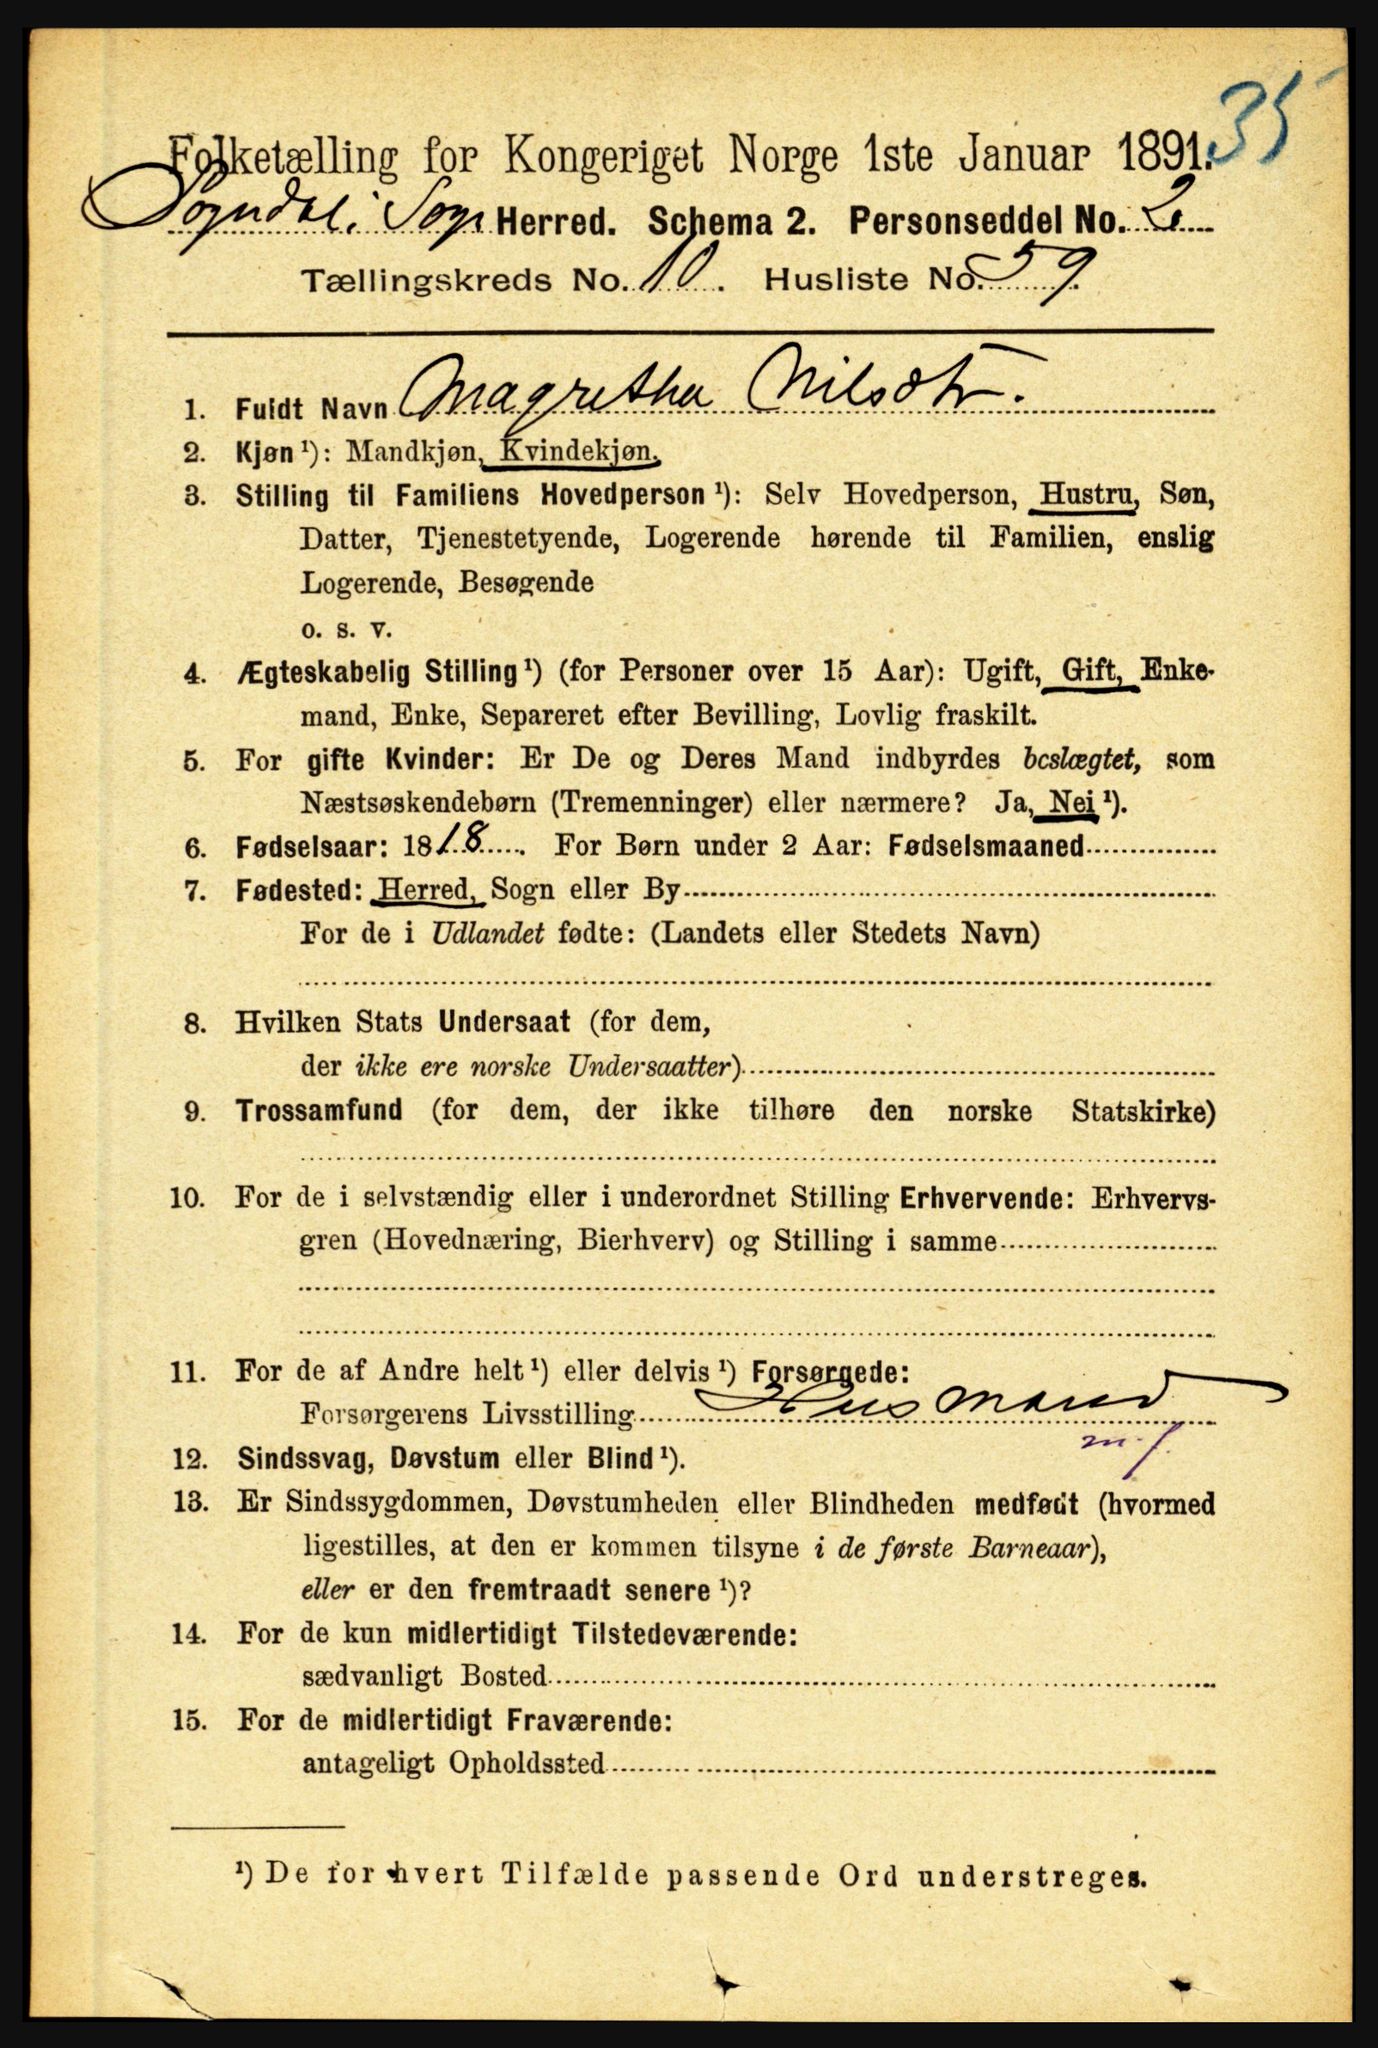 35
Folketælling for Kongeriget Norge 1ste Januar 1891.
Sogndal i Sogn Herred. Schema 2. Personseddel No. 2
Tællingskreds No. 10. Husliste No. 59.
1. Fuldt Navn Magretha Nilsdtr.
2. Kjøn¹): Mandkjøn, Kvindekjøn.
3. Stilling til Familiens Hovedperson¹): Selv Hovedperson, Hustru, Søn,
Datter, Tjenestetyende, Logerende hørende til Familien, enslig
Logerende, Besøgende
o. s. v.
4. Ægteskabelig Stilling¹) (for Personer over 15 Aar): Ugift, Gift, Enke-
mand, Enke, Separeret efter Bevilling, Lovlig fraskilt.
5. For gifte Kvinder: Er De og Deres Mand indbyrdes beslægtet, som
Næstsøskendebørn (Tremenninger) eller nærmere? Ja, Nei¹).
6. Fødselsaar: 1818. For Børn under 2 Aar: Fødselsmaaned
7. Fødested: Herred, Sogn eller By
For de i Udlandet fødte: (Landets eller Stedets Navn)
8. Hvilken Stats Undersaat (for dem,
der ikke ere norske Undersaatter)
9. Trossamfund (for dem, der ikke tilhøre den norske Statskirke)
10. For de i selvstændig eller i underordnet Stilling Erhvervende: Erhvervs-
gren (Hovednæring, Bierhverv) og Stilling i samme
11. For de af Andre helt¹) eller delvis¹) Forsørgede:
Forsørgerens Livsstilling Husmand
m. j.
12. Sindssvag, Døvstum eller Blind¹).
13. Er Sindssygdommen, Døvstumheden eller Blindheden medfødt (hvormed
ligestilles, at den er kommen tilsyne i de første Barneaar),
eller er den fremtraadt senere¹)?
14. For de kun midlertidigt Tilstedeværende:
sædvanligt Bosted
15. For de midlertidigt Fraværende:
antageligt Opholdssted
¹) De for hvert Tilfælde passende Ord understreges.